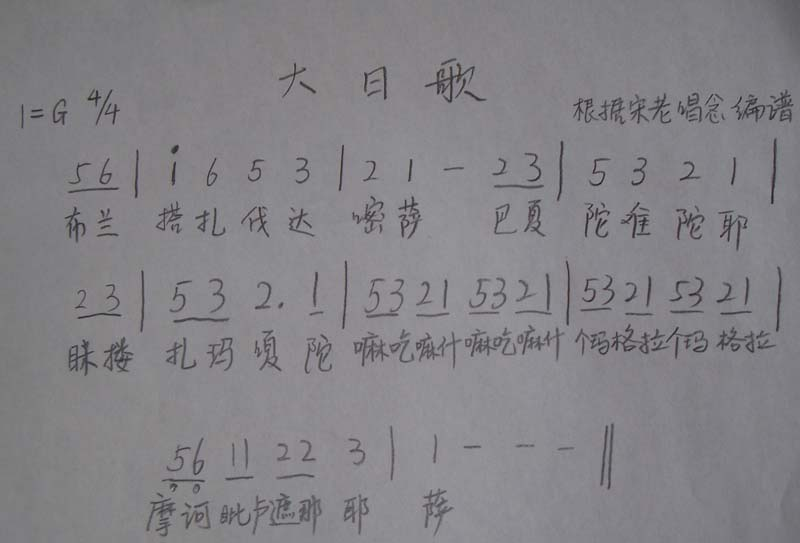 大日歌
1=G 4/4 根据宋老唱念编谱
56 | i 6 5 3 | 2 1 - 23 | 5 3 2 1 |
布兰 搭扎伐达 嘧萨 巴夏 陀难陀耶
23 | 53 2. 1 | 53 21 53 21 | 53 21 53 21 |
眯搂 扎玛须陀 嘛吃嘛什嘛吃嘛什 个玛格拉个玛格拉
56 11 22 3 | 1 - - - ‖
摩诃毗卢遮那耶 萨